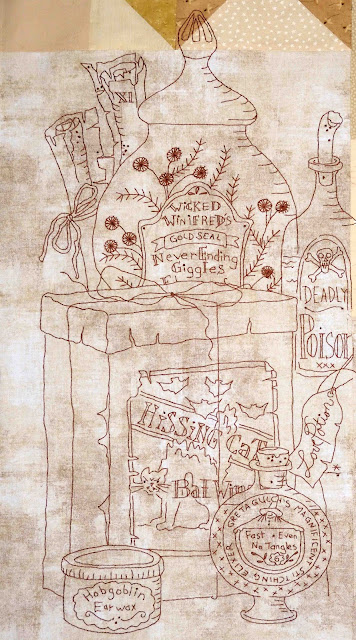 XI
WICKED
WINIFRED'S
GOLD SEAL
Never Ending
Giggles
DEADLY
POISON
XXX
HiSSiNG CaT
Bat Wings
Love Potion
GRETA GULCH'S MAGNIFICENT STITCHING ELIXER
Fast • Even
No Tangles
Hobgoblin
Ear wax